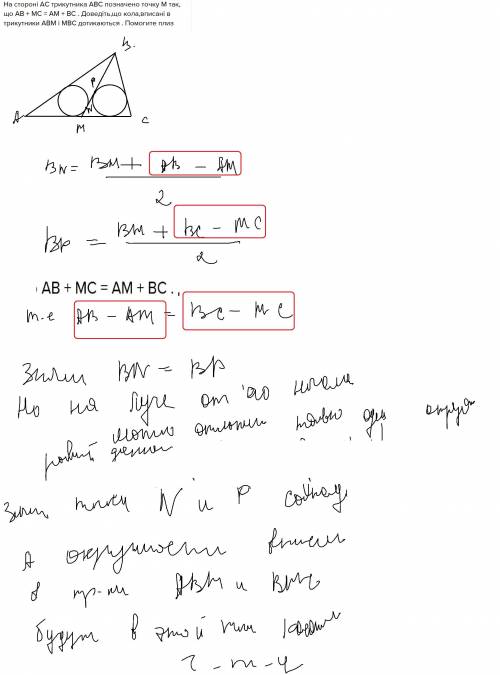 На стороні АС трикутника АВС позначено точку М так,
що АВ + МС = АМ + ВС . Доведіть,що кола,вписані в
трикутники АВМ і МВС дотикаються . Помогите плиз
B.
P
N
A
M
C
BN = BM + AB - AM
2
BP = BM + BC - MC
2
АВ + МС = АМ + ВС . ,
т.е AB - AM = BC - MC
Значит BN = BP
Но на луче от его начала
можно отложить только один отрезок
равный данному
Значит точки N и P совпад
А окружности вписан
в тр-ки ABM и BMC
будут в этой точке касаться
ч-т-д